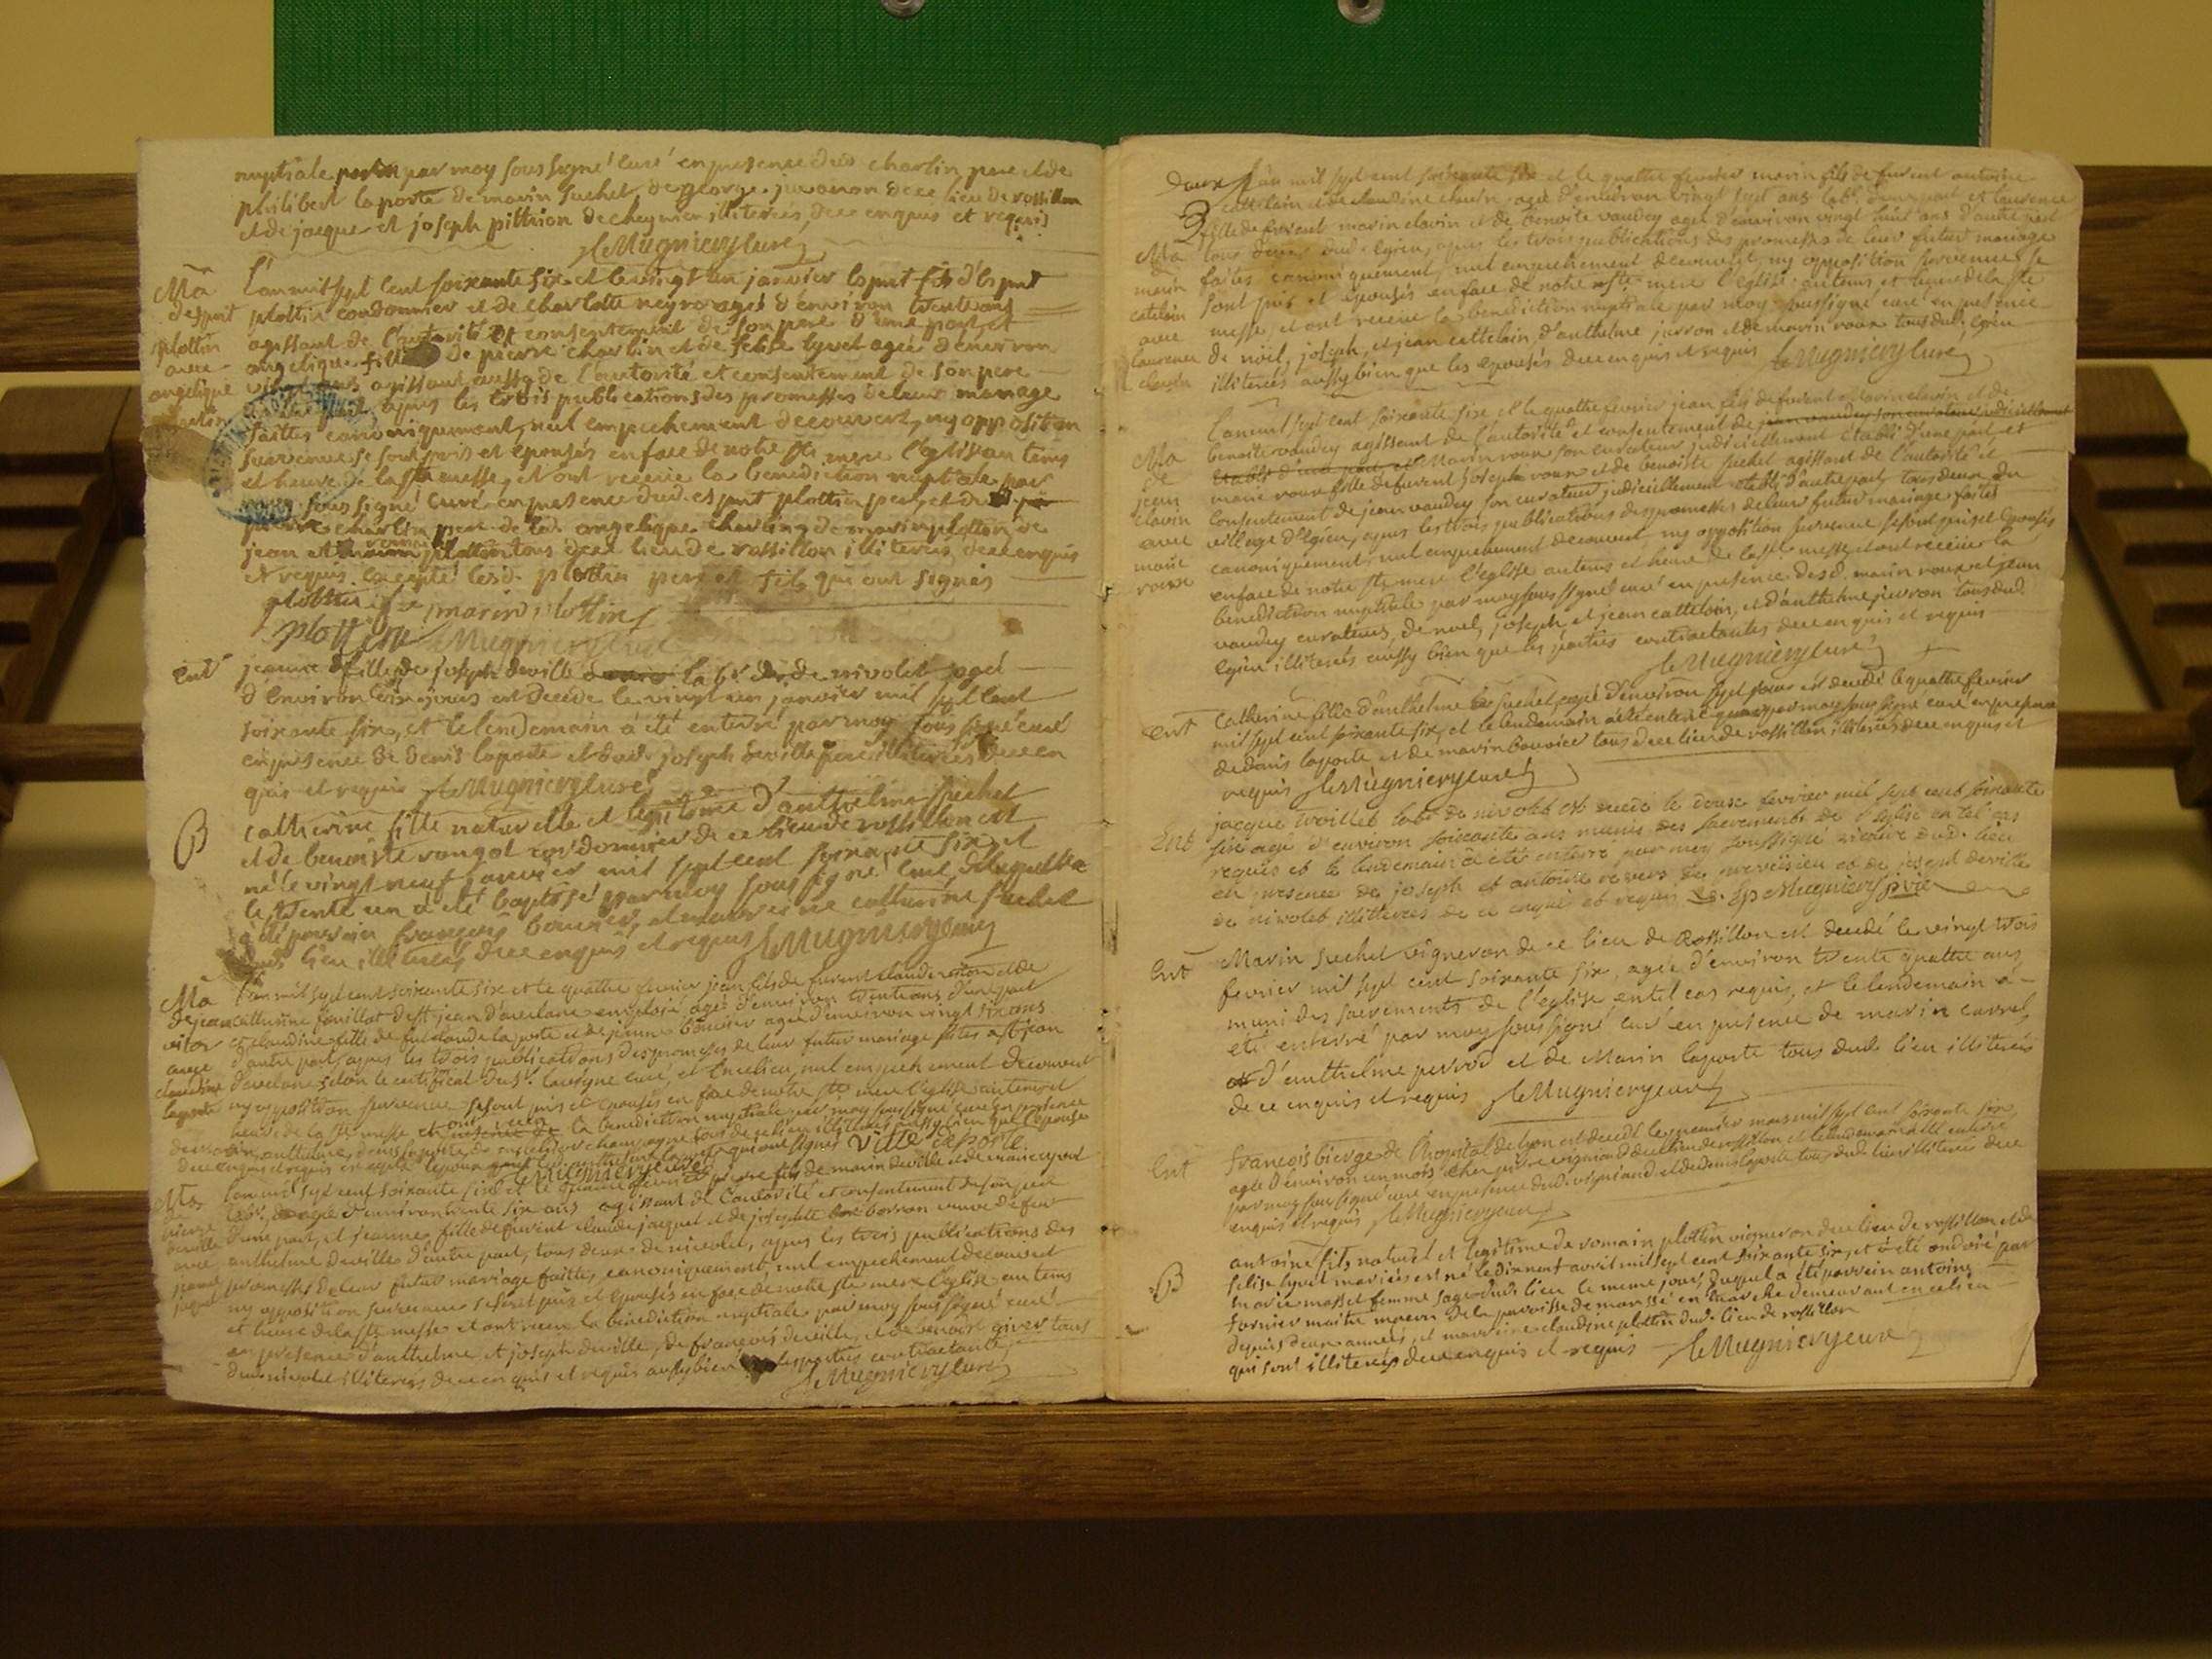 nuptiale par moy sous signé curé en presence dud charlin pere et de
philibert laporte de marin suchet de george juvanon de ce lieu de rossillon
et de jacque et joseph pittion de cheignieu illiterés, de ce enquis et requis
Mugniery curé
Ma L'an mil sept cent soixante six et le vingt un janvier esprit fils d'esprit
desprit plottin cordonnier et de charlotte negro agé d'environ trente ans
plottin agissant de l'autorité et consentement de son pere d'une part, et
avec angelique fille de pierre charlin et de felise lyvet agée d'environ
angelique vingt ans agissant aussy de l'autorité et consentement de son pere
charlin d'autre part, apres les trois publications des promesses de leur mariage
faittes canoniquement, nul empechement decouvert, ny opposition
survenue se sont pris et epousés en face de notre ste mere l'eglise au tems
et heure de la ste messe, et ont receue la benediction nuptiale par
moy sous signé curé en presence dud. esprit plottin pere, et dud
pierre charlin pere de lad. angelique charlin, de marin plottin de
jean et romain plottin tous de ce lieu de rossillon illiterés de ce enquis
et requis excepté lesd. plottin pere et fils qui ont signés
plottin marin plottin
plottin Mugniery curé
ent jeanne fille de joseph deville lab.r de nivolet agé
d'environ six jours est decedé le vingt un janvier mil sept cent
soixante six, et le lendemain a été enterré par moy sous signé curé
en presence de denis laporte et dud. joseph deville pere illiterés de ce en
quis et requis Mugniery curé
B catherine fille naturelle et legitime d'anthelme suchet
et de benoiste rongot cordonnier de ce lieu de rossillon est
né le vingt neuf janvier mil sept cent soixante six et
le trente un a été baptisé par moy sous signé curé, de laquelle
a été parrain françois bouvier, et marraine catherine suchet
dud. lieu, illiterés de ce enquis et requis Mugniery curé
Ma L'an mil sept cent soixante six et le quattre fevrier jean fils de furent claude
de jean catherine fouillot de st jean d'avelane agé d'environ trente ans d'une part
avec et claudine fille de fut claude laporte et de jeanne bouvier agée d'environ vingt six ans
claudine d'autre part, apres les trois publications des promesses de leur futur mariage faites a st jean
laporte d'avelane selon le certificat du sr. curé, et en ce lieu, nul empechement decouvert
ny opposition survenue se sont pris et epousés en face de notre ste mere l'eglise au tems et
heure de la ste messe et ont receu la benediction nuptiale par moy sous signé curé en presence
de ce enquis et requis
Mugniery curé
Ma L'an mil sept cent soixante six et le fevrier pierre fils de marin deville et de
pierre lab.r agé d'environ trente six ans agissant de l'autorité et consentement de son pere
deville d'une part, et jeanne fille de furent claude jacquet et de josephte borron veuve de feu
avec anthelme deville d'autre part, tous deux de nivolet, apres les trois publications des
jeanne promesses de leur futur mariage faittes, canoniquement, nul empechement decouvert
jaquet ny opposition survenue se sont pris et epousés en face de notre ste mere l'eglise au tems
et heure de la ste messe et ont receu la benediction nuptiale par moy sous signé curé
en presence d'anthelme et joseph deville, de françois deville, et de benoist givet tous
dud. nivolet illiterés de ce enquis et requis aussy bien que les parties contractantes
Mugniery curé
L'an mil sept cent soixante six et le quattre fevrier marin fils de furent antoine
cattelain et de claudine clavin, agé d'environ vingt sept ans lab.r d'une part et laurence
fille de furent marin clavin et de benoite vaudey agée d'environ vingt huit ans d'autre part
Ma tous deux dud. egieu, apres les trois publications des promesses de leur futur mariage
de marin faites canoniquement, nul empechement decouvert, ny opposition survenue se
catelain sont pris et epousés en face de notre ste mere l'eglise au tems et heure de la ste
avec messe, et ont receue la benediction nuptiale par moy soussigné curé en presence
laurence de noël, joseph, et jean cattelain, d'anthelme juvron et de marin roux tous dud. egieu
clavin illiterés aussy bien que les epousés de ce enquis et requis Mugniery curé
L'an mil sept cent soixante six et le quattre fevrier jean fils de furent marin clavin et de
Ma benoite vaudey agissant de l'autorité et consentement de jean vaudey son curateur judiciellement
de établi d'une part, et Marin roux son curateur judiciellement établi d'une part, et
jean marie roux fille de furent joseph roux et de benoiste suchet agissant de l'autorité et
clavin consentement de jean vaudey son curateur judiciellement établi d'autre part tous deux du
avec village d'egieu, apres les trois publications des promesses de leur futur mariage faites
marie canoniquement, nul empechement decouvert, ny opposition survenue se sont pris et epousés
roux en face de notre ste mere l'eglise au tems et heure de la ste messe, et ont receue la
benediction nuptiale par moy sous signé curé en presence desd. marin roux et jean
vaudey curateurs, de noel, joseph et jean cattelain, et d'anthelme juvron tous dud.
egieu illiterés aussy bien que les parties contractantes de ce enquis et requis
Mugniery curé
ent Catherine fille d'anthelme suchet agé d'environ sept jours est decedé le quattre fevrier
mil sept cent soixante six, et le lendemain a été enterré par moy sous signé curé en presence
de denis laporte et de marin bouvier tous de ce lieu de rossillon illiterés de ce enquis et
requis Mugniery curé
Ent jacque troillet lab.r de nivolet est decedé le douze fevrier mil sept cent soixante
six agé d'environ soixante ans munis des sacrements de l'eglise en tel cas
requis et le lendemain a été enterré par moy soussigné vicaire dud. lieu
en presence de joseph et antoine et de joseph deville
de nivolet illitteres de ce enquis et requis Mugniery vic
Ent Marin suchet vigneron de ce lieu de Rossillon est decedé le vingt trois
fevrier mil sept cent soixante six, agée d'environ trente quattre ans
muni des sacrements de l'eglise en tel cas requis, et le lendemain a
été enterré par moy sous signé curé en presence de marin carrel,
d'anthelme perrod et de Marin laporte tous dud. lieu illiterés
de ce enquis et requis Mugniery curé
Ent françois bierge de l'hopital de lyon est decedé le premier mars mil sept cent soixante six
agé d'environ un mois chez pierre vigniand de ce lieu de rossillon et le lendemain a été enterré
par moy sous signé curé en presence dud. vigniand et de denis laporte tous dud. lieu illiterés de ce
enquis et requis Mugniery curé
B antoine fils naturel et legitime de romain plottin vigneron de ce lieu de rossillon et de
felise lyvet mariés est né le dixneuf avril mil sept cent soixante six, et a été ondoié par
marie masset femme sage dud. lieu le meme jour, duquel a été parrein antoine
fornier maitre macon de la paroisse de marssé en marche demeurant en ce lieu
depuis deux années, et marreine claudine plottin dud. lieu de rossillon
qui sont illiterés de ce enquis et requis Mugniery curé